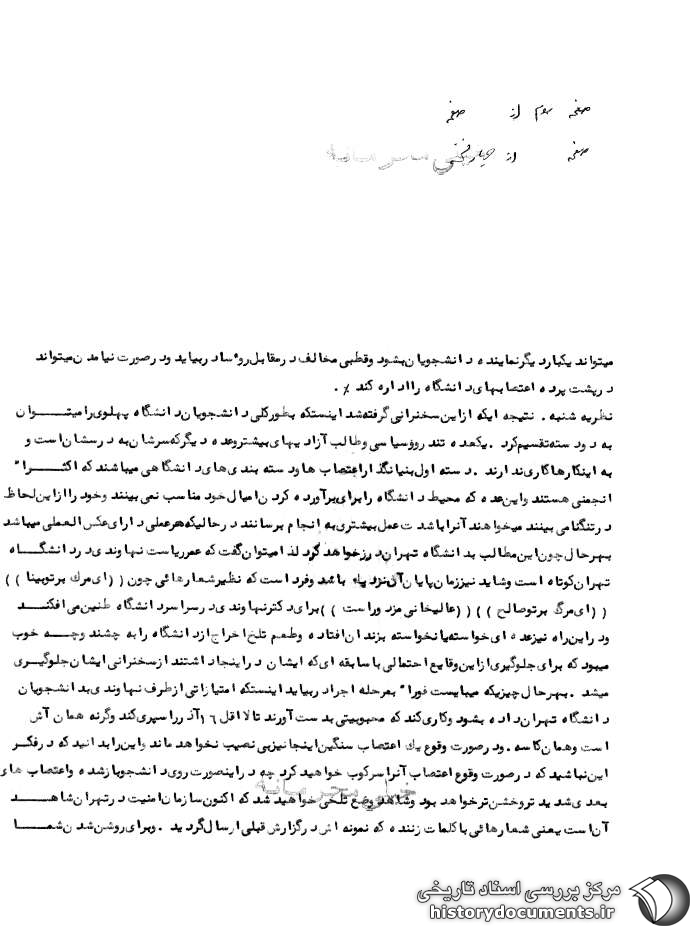 صفحه سوم از صفحه
صفحه از
خیلی محرمانه
میتواند یکبار دیگر نماینده دانشجویان بشود وقطبی مخالف در مقابل روءسا دربیاید ودرصورت نیامدن میتواند
درپشت پرده اعتصابهای دانشگاه را اداره کند ٪ .
نظریه شنبه . نتیجه ایکه از این سخنرانی گرفته شد اینستکه بطورکلی دانشجویان دانشگاه پهلوی را میتـــــوان
به دودسته تقسیم کرد . یکعده تند رو وسیاسی وطالب آزادیهای بیشتر وعده دیگر که سرشان به درسشان است و
به اینکارها کاری ندارند . دسته اول بنیانگذار اعتصاب ها ودسته بندی های دانشگاهی میباشند که اکثـــرا"
انجمنی هستند واین عده که محیط دانشگاه را برای برآورده کردن امیال خود مناسب نمی بینند وخود را از این لحاظ
درتنگنا می بینند میخواهند آنرا باشدت عمل بیشتری به انجام برسانند درحالیکه هرعملی دارای عکس العملی میباشد
بهرحال چون این مطالب بدانشگاه تهران درز خواهد کرد لذا میتوان گفت که عمر ریاست نهاوندی دردانشگـــاه
تهران کوتاه است وشاید نیز زمان پایان آن نزدیک باشد وفردا است که نظیر شعارهائی چون ((ای مرگ برتو بینا))
((ای مرگ برتو صالح))((عالیخانی مزدور است)) برای دکتر نهاوندی درسراسر دانشگاه طنین می افکنـــد
ودراین راه نیز عده ای خواسته یا نخواسته بزندان افتاده وطعم تلخ اخراج از دانشگاه را به چشند وچـــه خوب
میبود که برای جلوگیری از این وقایع احتمالی باسابقه ای که ایشان دراینجا داشتند از سخنرانی ایشان جلوگیـــری
میشد . بهرحال چیزیکه میبایست فورا" بمرحله اجرا دربیاید اینستکه امتیازاتی از طرف نهاوندی بدانشجویان
دانشگاه تهران داده بشود وکاری کند که محبوبیتی بدست آورند تا لااقل ١٦ آذر را سپری کند وگرنه همان آش
است وهمان کاسه . ودرصورت وقوع یك اعتصاب سنگین اینجا نیز بی نصیب نخواهد ماند واین را بدانید که درفکـر
این نباشید که درصورت وقوع اعتصاب آنرا سرکوب خواهید کرد چه دراینصورت روی دانشجو باز شده واعتصاب های
بعدی شدید تر وخشن تر خواهد بود وشاهد وضع تلخی خواهید شد که اکنون سازمان امنیت درتهران شاهـــــد
آن است یعنی شعارهائی با کلمات زننده که نمونه اش درگزارش قبلی ارسال گردید . وبرای روشن شدن شمـــــا
خیلی محرمانه
مرکز بررسی اسناد تاریخی
historydocuments.ir